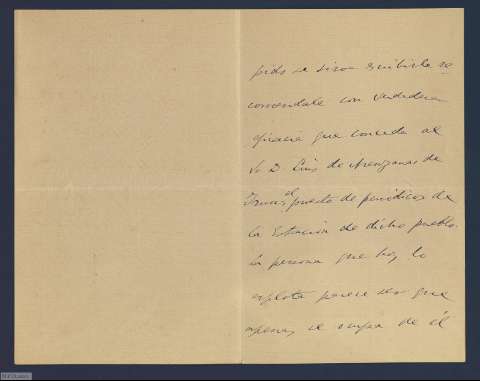 pido se sirva escribirle re
comendale con verdadera
eficacia que conceda al
Sr D. Luis de Aranzanas de
Irun, el puesto de periódicos de
la Estación de dicho pueblo.
La persona que hoy lo
explota parece ser que
apenas se ocupa de él